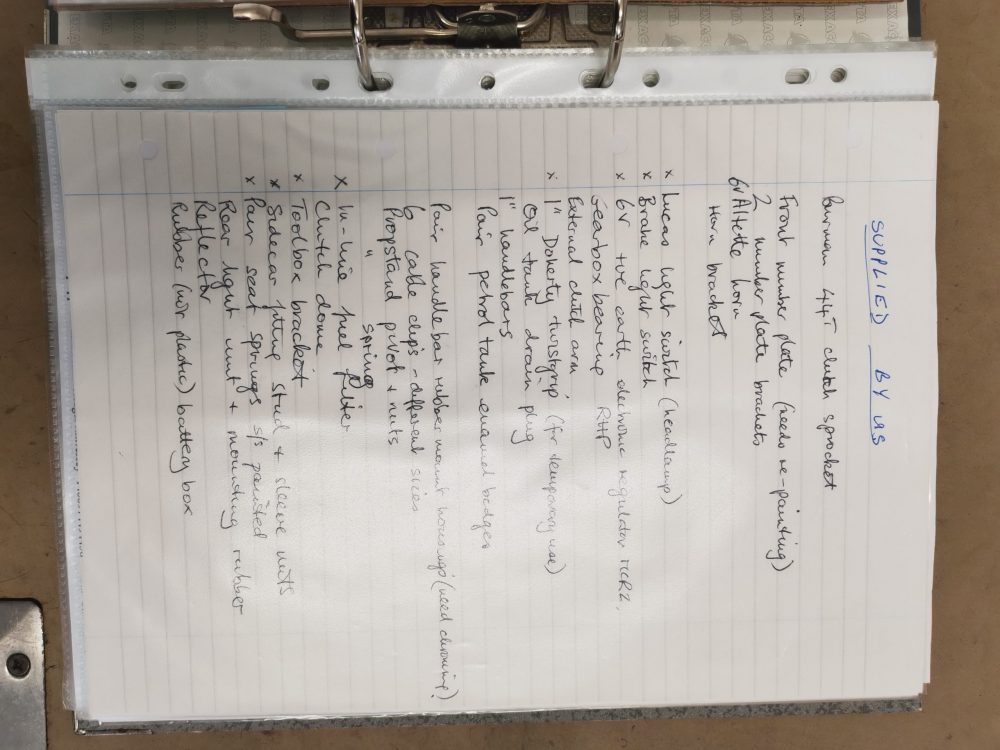 SUPPLIED BY US
Burman 44T clutch sprocket
Front number plate (needs re-painting)
2 number plate brackets
6v Altette horn
Horn bracket
x Lucas light switch (headlamp)
x Brake light switch
x 6v +ve earth electronic regulator
Gearbox bearing RHP
External clutch arm
x 1" Doherty twistgrip (for temporary use)
Oil tank drain plug
1" handlebars
Pair petrol tank enamel badges
Pair handlebar rubber mount housings (need chroming)
6 cable clips - different sizes
Propstand pivot + nuts
" spring
x In-line fuel filter
Clutch dome
x Toolbox bracket
x Sidecar fitting stud + sleeve nuts
x Pair seat springs s/s painted
Rear light unit + mounting rubber
Reflector
Rubber (not plastic) battery box